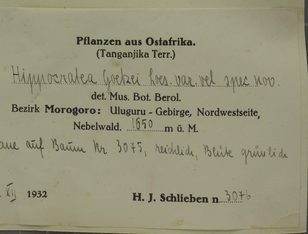 Pflanzen aus Ostafrika.
(Tanganjika Terr.)
Hippocratea Goetzei Loes. var. vel spec. nov.
det. Mus. Bot. Berol.
Bezirk Morogoro: Uluguru - Gebirge, Nordwestseite,
Nebelwald. 1650 m ü. M.
auf Baum Nr. 3075, reichlich, Blüte grünlich
XII 1932
H. J. Schlieben n 3076